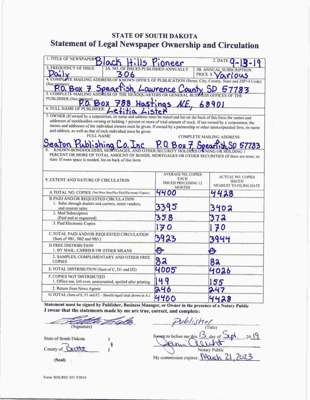 STATE OF SOUTH DAKOTA
Statement of Legal Newspaper Ownership and Circulation
1. TITLE OF NEWSPAPER Black Hills Pioneer 2. DATE 9-13-19
3. FREQUENCY OF ISSUE Daily 3A. NO. OF ISSUES PUBLISHED ANNUALLY 306 3B. ANNUAL SUBSCRIPTION PRICE $ Various
4. COMPLETE MAILING ADDRESS OF KNOWN OFFICE OF PUBLICATION (Street, City, County, State and ZIP+4 Code)
P.O. Box 7 Spearfish, Lawrence County, SD 57783
5. COMPLETE MAILING ADDRESS OF THE HEADQUARTERS OR GENERAL BUSINESS OFFICES OF THE
P.O. Box 788 Hastings NE, 68901
6. FULL NAME OF PUBLISHER: Letitia Lister
7. OWNER (If owned by a corporation, its name and address must be stated and on the back of this form the names and
addresses of stockholders owning or holding 1 percent or more of total amount of stock. If not owned by a corporation, the
names and addresses of the individual owners must be given. If owned by a partnership or other unincorporated firm, its name
and address, as well as that of each individual must be given.
FULL NAME COMPLETE MAILING ADDRESS
Seaton Publishing Co. Inc P.O. Box 7 Spearfish, SD 57783
8. KNOWN BONDHOLDERS, MORTGAGEES, AND OTHER SECURITY HOLDERS OWNING OR HOLDING 1
PERCENT OR MORE OF TOTAL AMOUNT OF BONDS, MORTGAGES OR OTHER SECURITIES (If there are none, so
state. If more space is needed, list on back of this form.
9. EXTENT AND NATURE OF CIRCULATION
AVERAGE NO. COPIES
EACH
ISSUED PRECEDING 12
MONTHS
ACTUAL NO. COPIES
ISSUED
NEAREST TO FILING DATE
A. TOTAL NO. COPIES 4400 4428
B. PAID AND/OR REQUESTED CIRCULATION
1. Sales through dealers and carriers, street vendors,
and counter sales 3395 3402
2. Mail Subscription
(Paid and or requested) 358 372
3. Paid Electronic Copies 170 170
C. TOTAL PAID AND/OR REQUESTED CIRCULATION
(Sum of 9B1, 9B2 and 9B3) 3923 3944
D. FREE DISTRIBUTION
1. BY MAIL, CARRIER OR OTHER MEANS 0 0
2. SAMPLES, COMPLIMENTARY AND OTHER FREE
COPIES 82 82
E. TOTAL DISTRIBUTION (Sum of C, D1 and D2) 4005 4026
F. COPIES NOT DISTRIBUTED
1. Office use, left over, unaccounted, spoiled after printing 149 155
2. Return from News Agents 246 247
G. TOTAL (Sum of E, F1 and F2 - Should equal total shown in A.) 4400 4428
Statement must be signed by Publisher, Business Manager, or Owner in the presence of a Notary Public
I swear that the statements made by me are true, correct, and complete:
Publisher
(Signature) (Title)
State of South Dakota ) Sworn to before me this 13 day of Sept, 2019
County of Butte )
Notary Public
(Seal) My commission expires: March 21, 2023